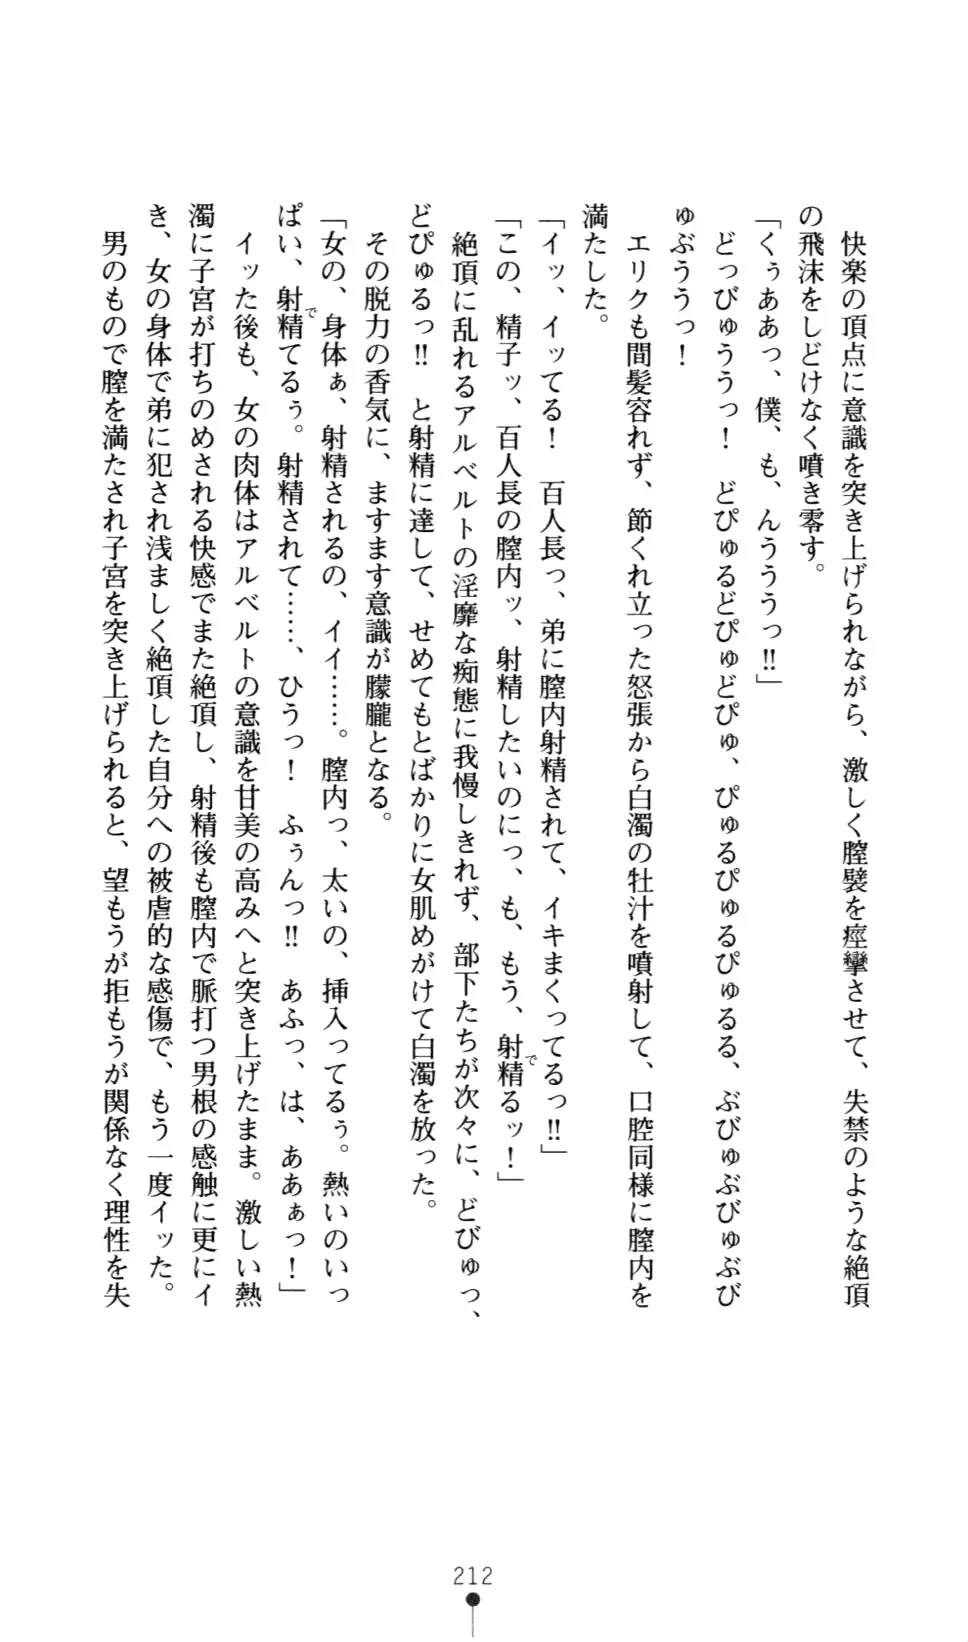 快楽の頂点に意識を突き上げられながら、激しく膣襞を痙攣させて、失禁のような絶頂
の飛沫をしどけなく噴き零す。
「くぅああっ、僕、も、んうううっ‼」
どっびゅううっ！　どぴゅるどぴゅどぴゅ、ぴゅるぴゅるぴゅるる、ぶびゅぶびゅぶび
ゅぶううっ！
エリクも間髪容れず、節くれ立った怒張から白濁の牡汁を噴射して、口腔同様に膣内を
満たした。
「イッ、イッてる！　百人長っ、弟に膣内射精されて、イキまくってるっ‼」
「この、精子ッ、百人長の膣内ッ、射精したいのにっ、も、もう、射精るッ！」
絶頂に乱れるアルベルトの淫靡な痴態に我慢しきれず、部下たちが次々に、どびゅっ、
どぴゅるっ‼　と射精に達して、せめてもとばかりに女肌めがけて白濁を放った。
その脱力の香気に、ますます意識が朦朧となる。
「女の、身体ぁ、射精されるの、イイ……。膣内っ、太いの、挿入ってるぅ。熱いのいっ
ぱい、射精てるぅ。射精されて……、ひうっ！　ふぅんっ‼　あふっ、は、ああぁっ！」
イッた後も、女の肉体はアルベルトの意識を甘美の高みへと突き上げたまま。激しい熱
濁に子宮が打ちのめされる快感でまた絶頂し、射精後も膣内で脈打つ男根の感触に更にイ
き、女の身体で弟に犯され浅ましく絶頂した自分への被虐的な感傷で、もう一度イッた。
男のもので膣を満たされ子宮を突き上げられると、望もうが拒もうが関係なく理性を失
212